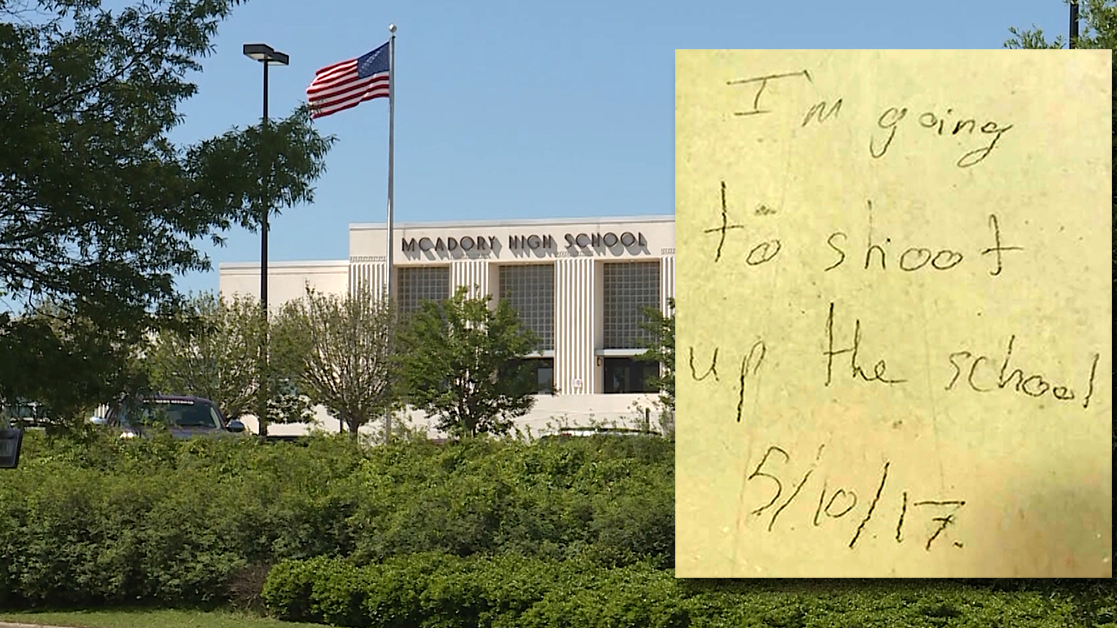 MCADORY HIGH SCHOOL
I'm going
to shoot
up the school
5/10/17.